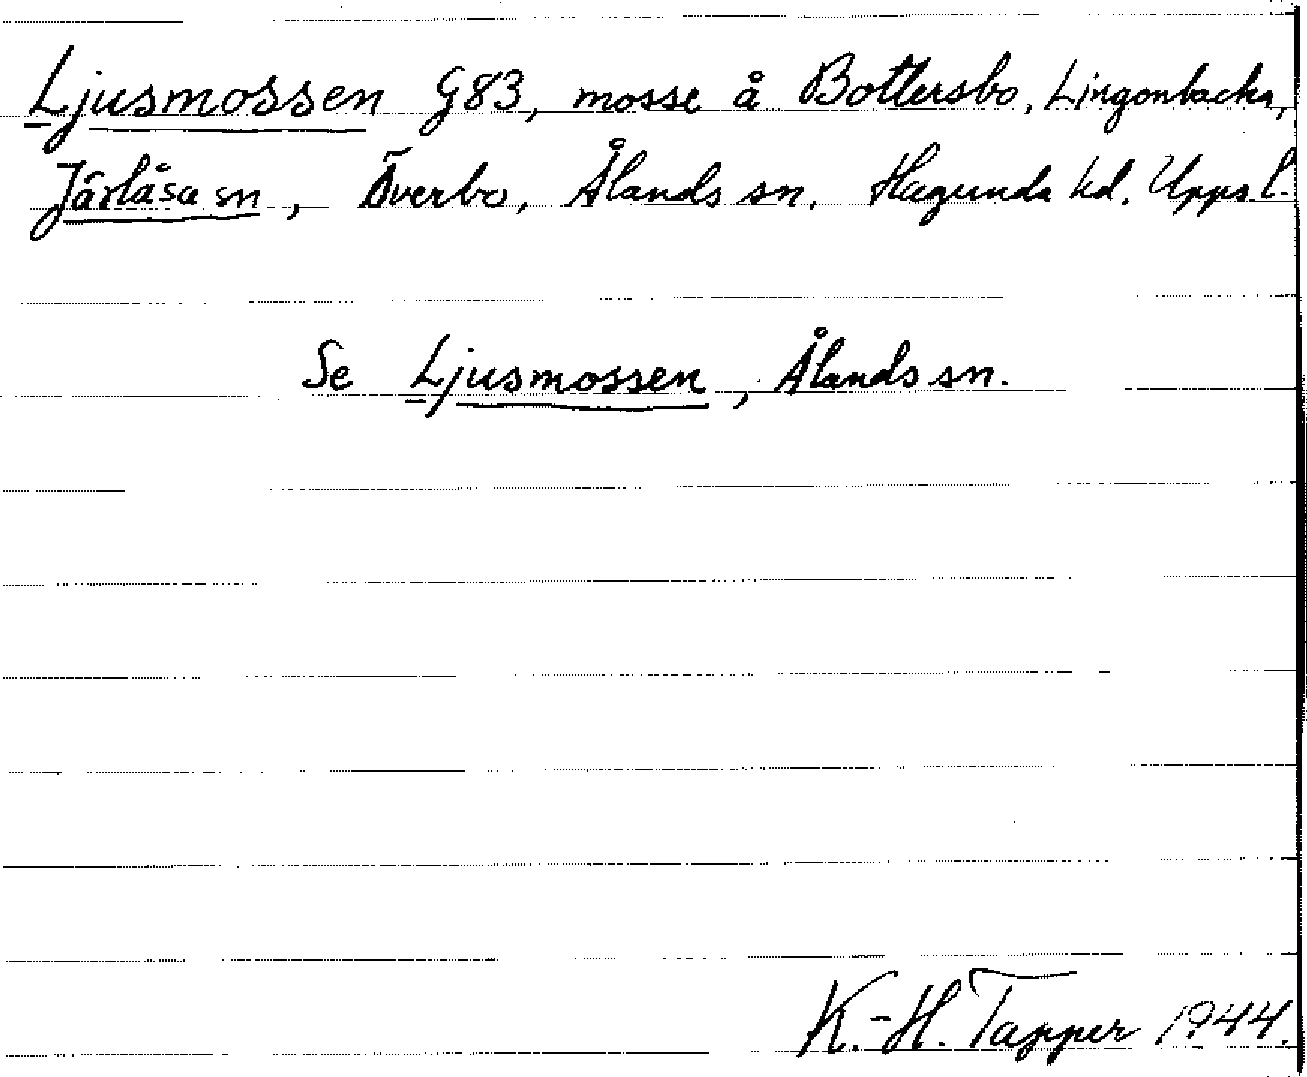 Ljusmossen G83, mosse å Bottersbo, Lingonbacka,
Järlåsa sn, Överbo, Ålands sn. Hagunda hd. Uppsl.
Se Ljusmossen, Ålands sn.
K.-H. Tapper 1944.